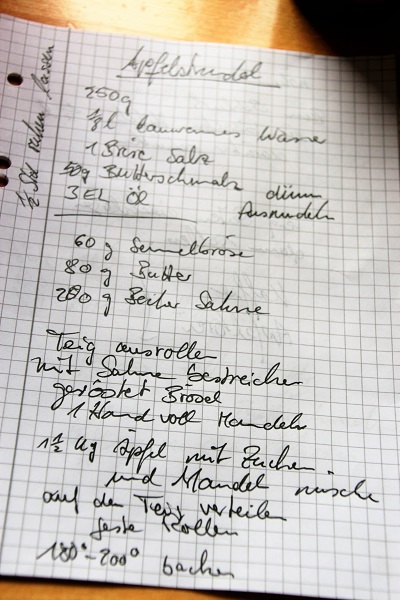 Apfelstrudel
250g
1/8 l lauwarmes Wasser
1 Brise Salz
50g Butterschmalz dünn
3 EL Öl Ausnudeln
1/2 Std ruhen lassen
60 g Semmelbrösel
80 g Butter
200 g Becher Sahne
Teig ausrollen
mit Sahne bestreichen
geröstet Brösel
1 Hand voll Mandeln
1 1/2 kg Äpfel mit Zucker
und Mandel mische
auf den Teig verteilen
feste Rollen
180°-200° backen